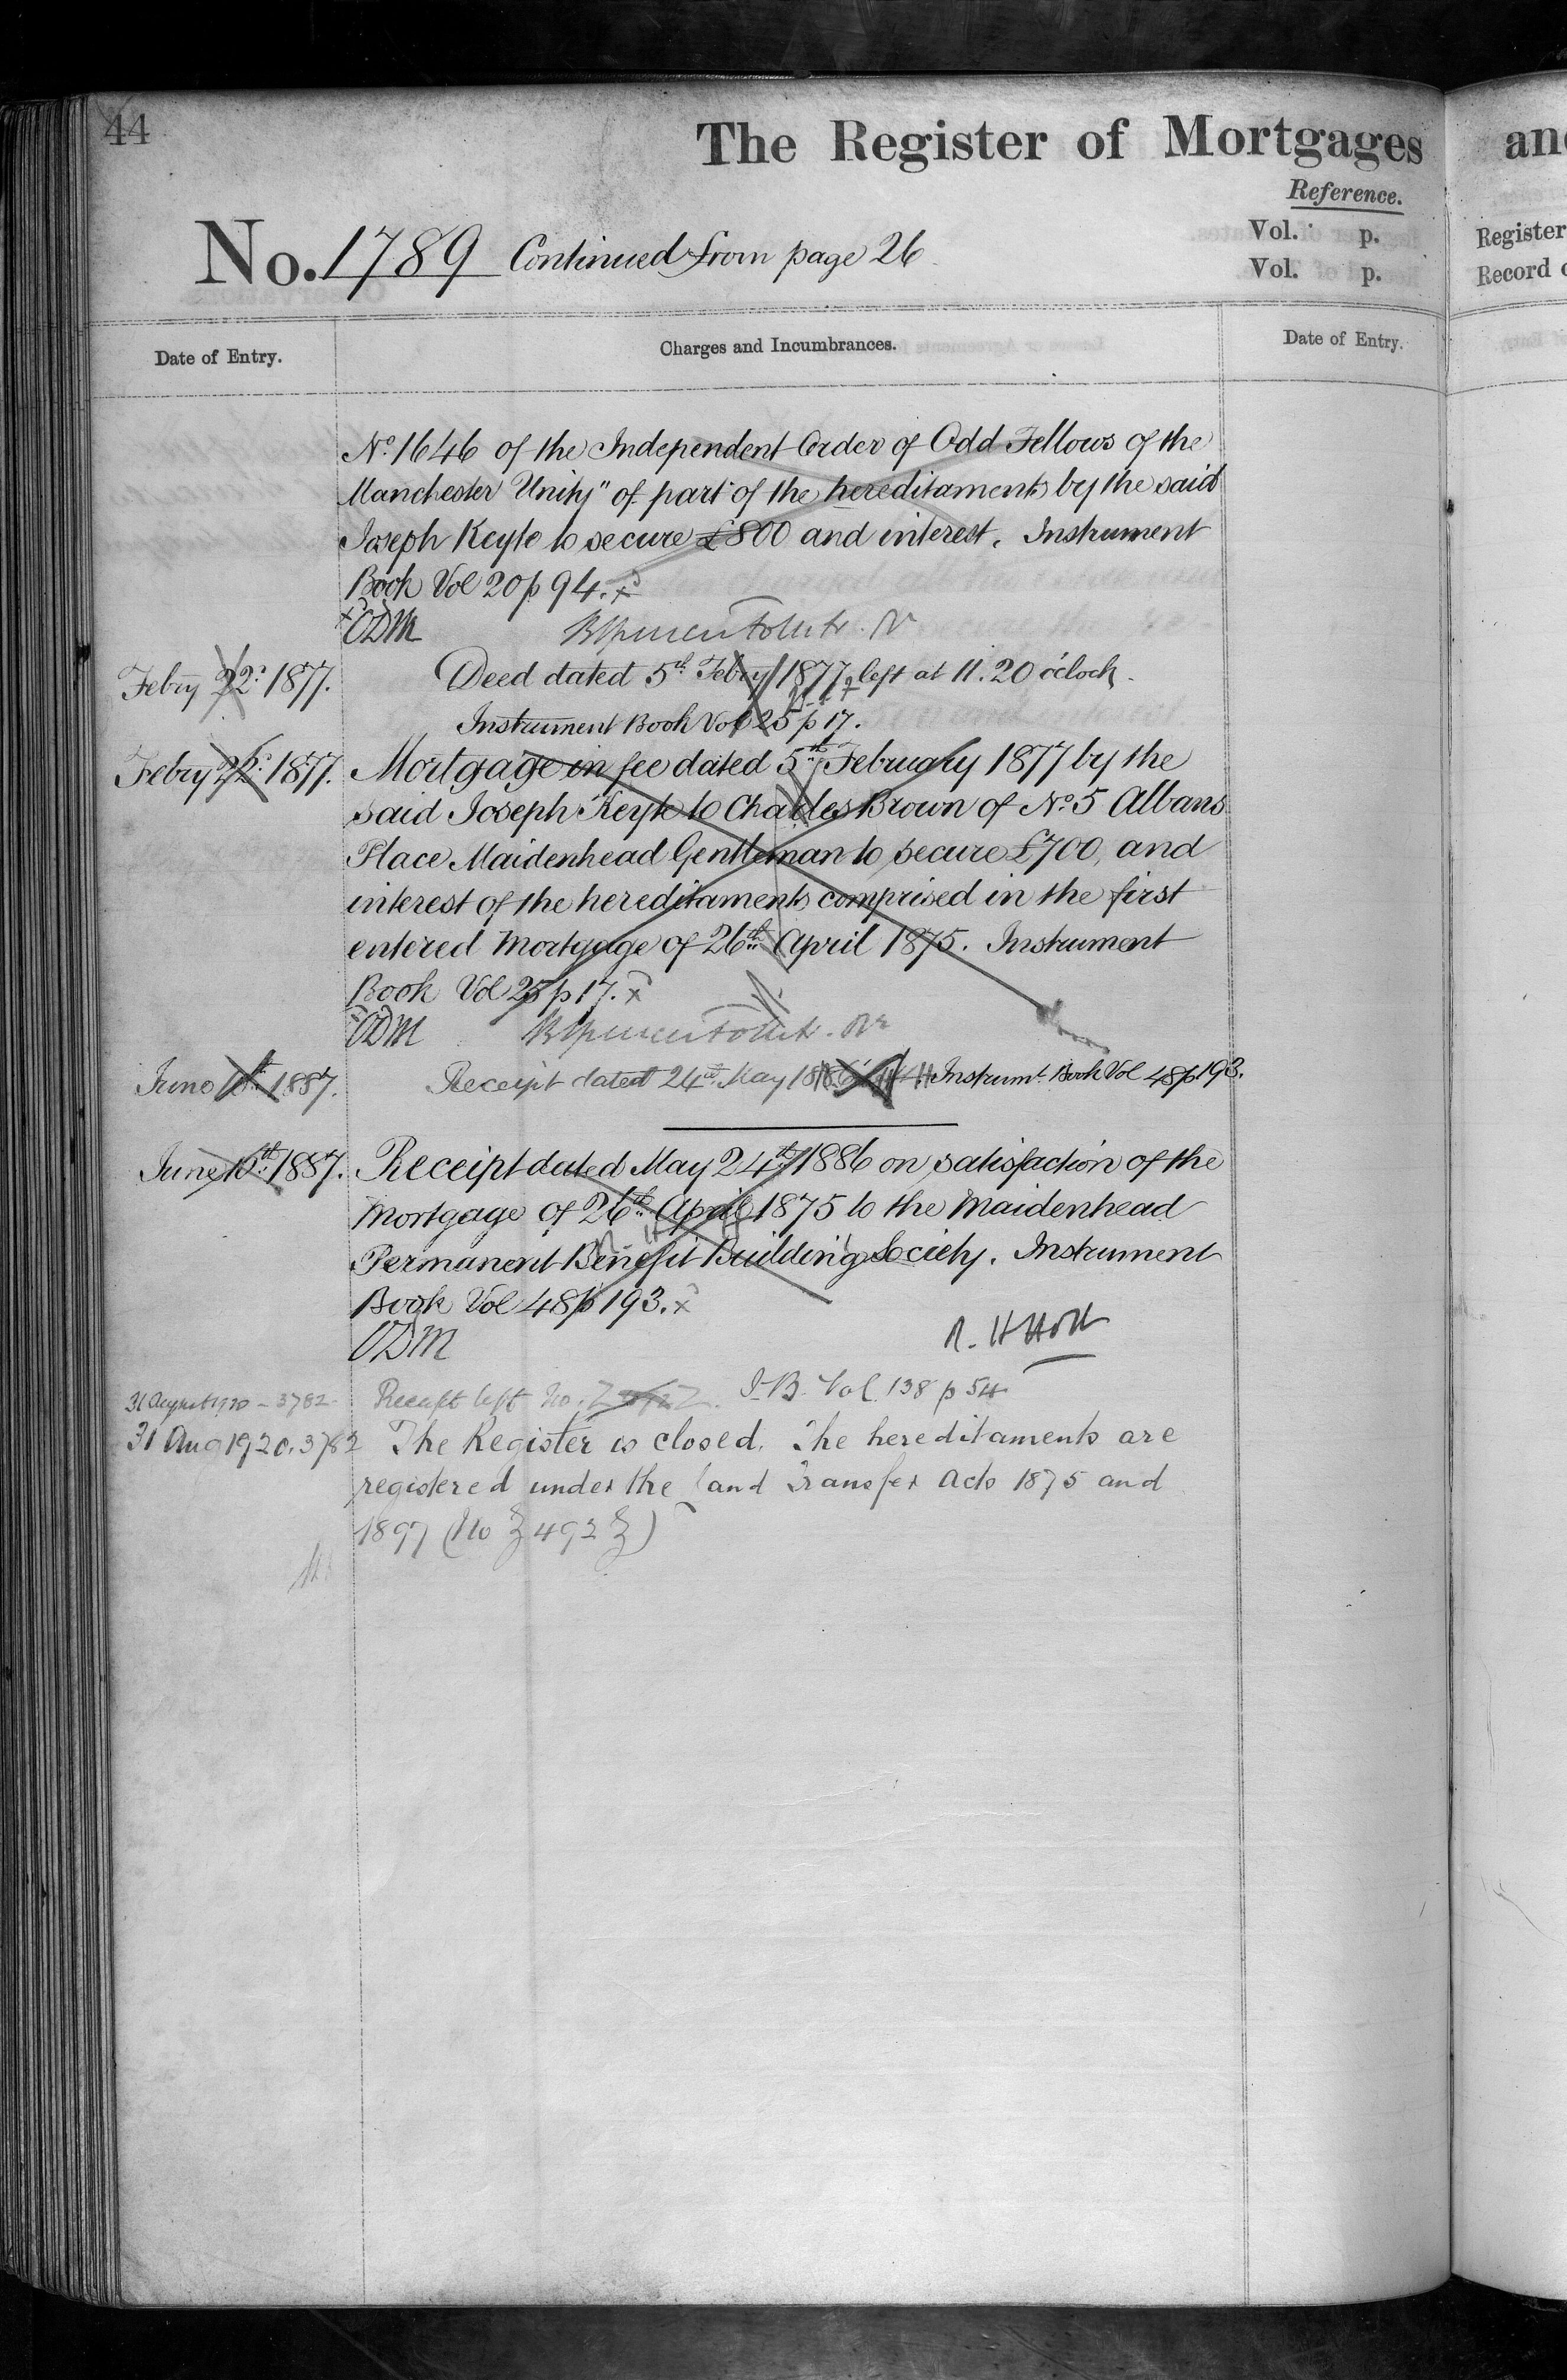 44
The Register of Mortgages
an
Reference.
No. 1789 Continued from page 26
Vol. p.
Vol. p.
Register
Record
Date of Entry.
Charges and Incumbrances.
Date of Entry.
No. 1646 of the Independent Order of Odd Fellows of the
Manchester Unity" of part of the hereditaments by the said
Joseph Keyte to secure £800 and interest. Instrument
Book Vol 20 p 94. x
x ODM
Febry 22d 1877. Deed dated 5th Febry 1877 left at 11.20 o'clock.
Instrument Book Vol 25 p 17.
Febry 22d 1877. Mortgage in fee dated 5th February 1877 by the
said Joseph Keyte to Charles Brown of No. 5 Albans
Place Maidenhead Gentleman to secure £700, and
interest of the hereditaments comprised in the first
entered Mortgage of 26th April 1875. Instrument
Book Vol 25 p 17. x
x ODM
June 10th 1887. Receipt dated 24th May 1886 Instrumt. Book Vol 48 p 193.
June 10th 1887. Receipt dated May 24th 1886 on satisfaction of the
Mortgage of 26th April 1875 to the Maidenhead
Permanent Benefit Building Society. Instrument
Book Vol 48 p 193. x
ODM
R. H Holt
31 August 1920 - 3782 Receipt left No. I.B. Vol. 138 p 54
31 Aug 1920. 3782 The Register is closed. The hereditaments are
registered under the Land Transfer Acts 1875 and
1897 (No Z 492 Z)